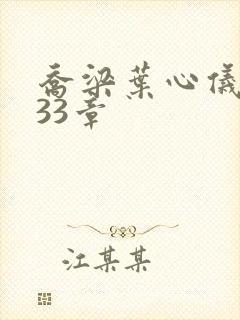 乔梁叶心仪
33章
江某某